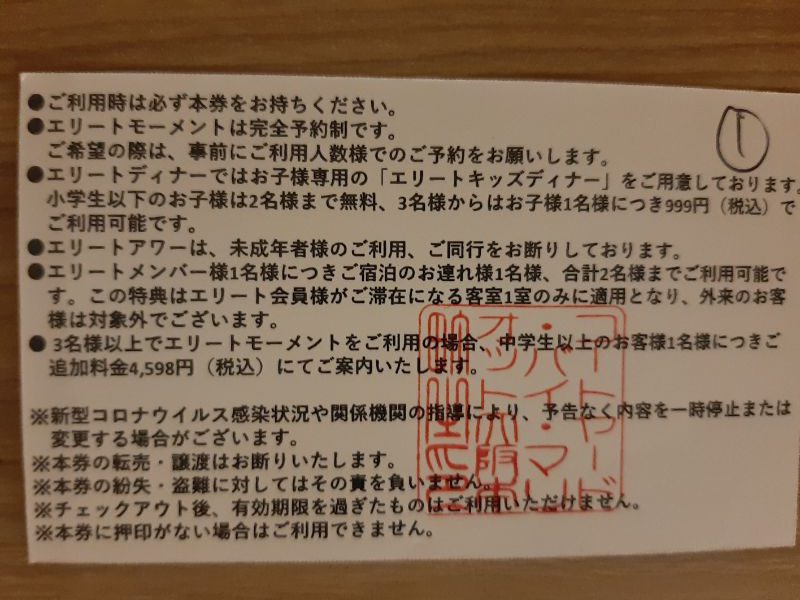 ●ご利用時は必ず本券をお持ちください。
●エリートモーメントは完全予約制です。
ご希望の際は、事前にご利用人数様でのご予約をお願いします。
●エリートディナーではお子様専用の「エリートキッズディナー」をご用意しております。
小学生以下のお子様は2名様まで無料、3名様からはお子様1名様につき999円（税込）で
ご利用可能です。
●エリートアワーは、未成年者様のご利用、ご同行をお断りしております。
●エリートメンバー様1名様につきご宿泊のお連れ様1名様、合計2名様までご利用可能で
す。この特典はエリート会員様がご滞在になる客室1室のみに適用となり、外来のお客
様は対象外でございます。
● 3名様以上でエリートモーメントをご利用の場合、中学生以上のお客様1名様につきご
追加料金4,598円（税込）にてご案内いたします。
※新型コロナウイルス感染状況や関係機関の指導により、予告なく内容を一時停止または
変更する場合がございます。
※本券の転売・譲渡はお断りいたします。
※本券の紛失・盗難に対してはその責を負いません。
※チェックアウト後、有効期限を過ぎたものはご利用いただけません。
※本券に押印がない場合はご利用できません。
①
コートヤード
・バイ・マリ
オット大阪本